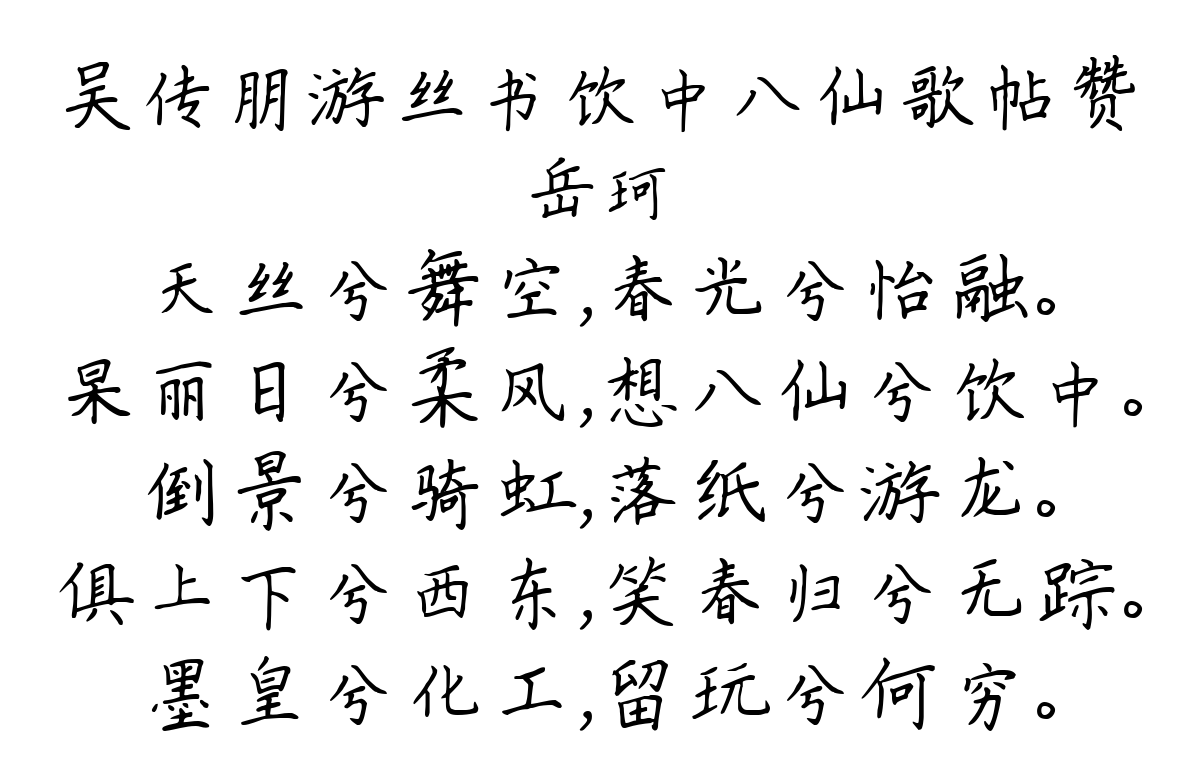 吴传朋游丝书饮中八仙歌帖赞
岳珂
天丝兮舞空,春光兮怡融。
杲丽日兮柔风,想八仙兮饮中。
倒景兮骑虹,落纸兮游龙。
俱上下兮西东,笑春归兮无踪。
墨皇兮化工,留玩兮何穷。